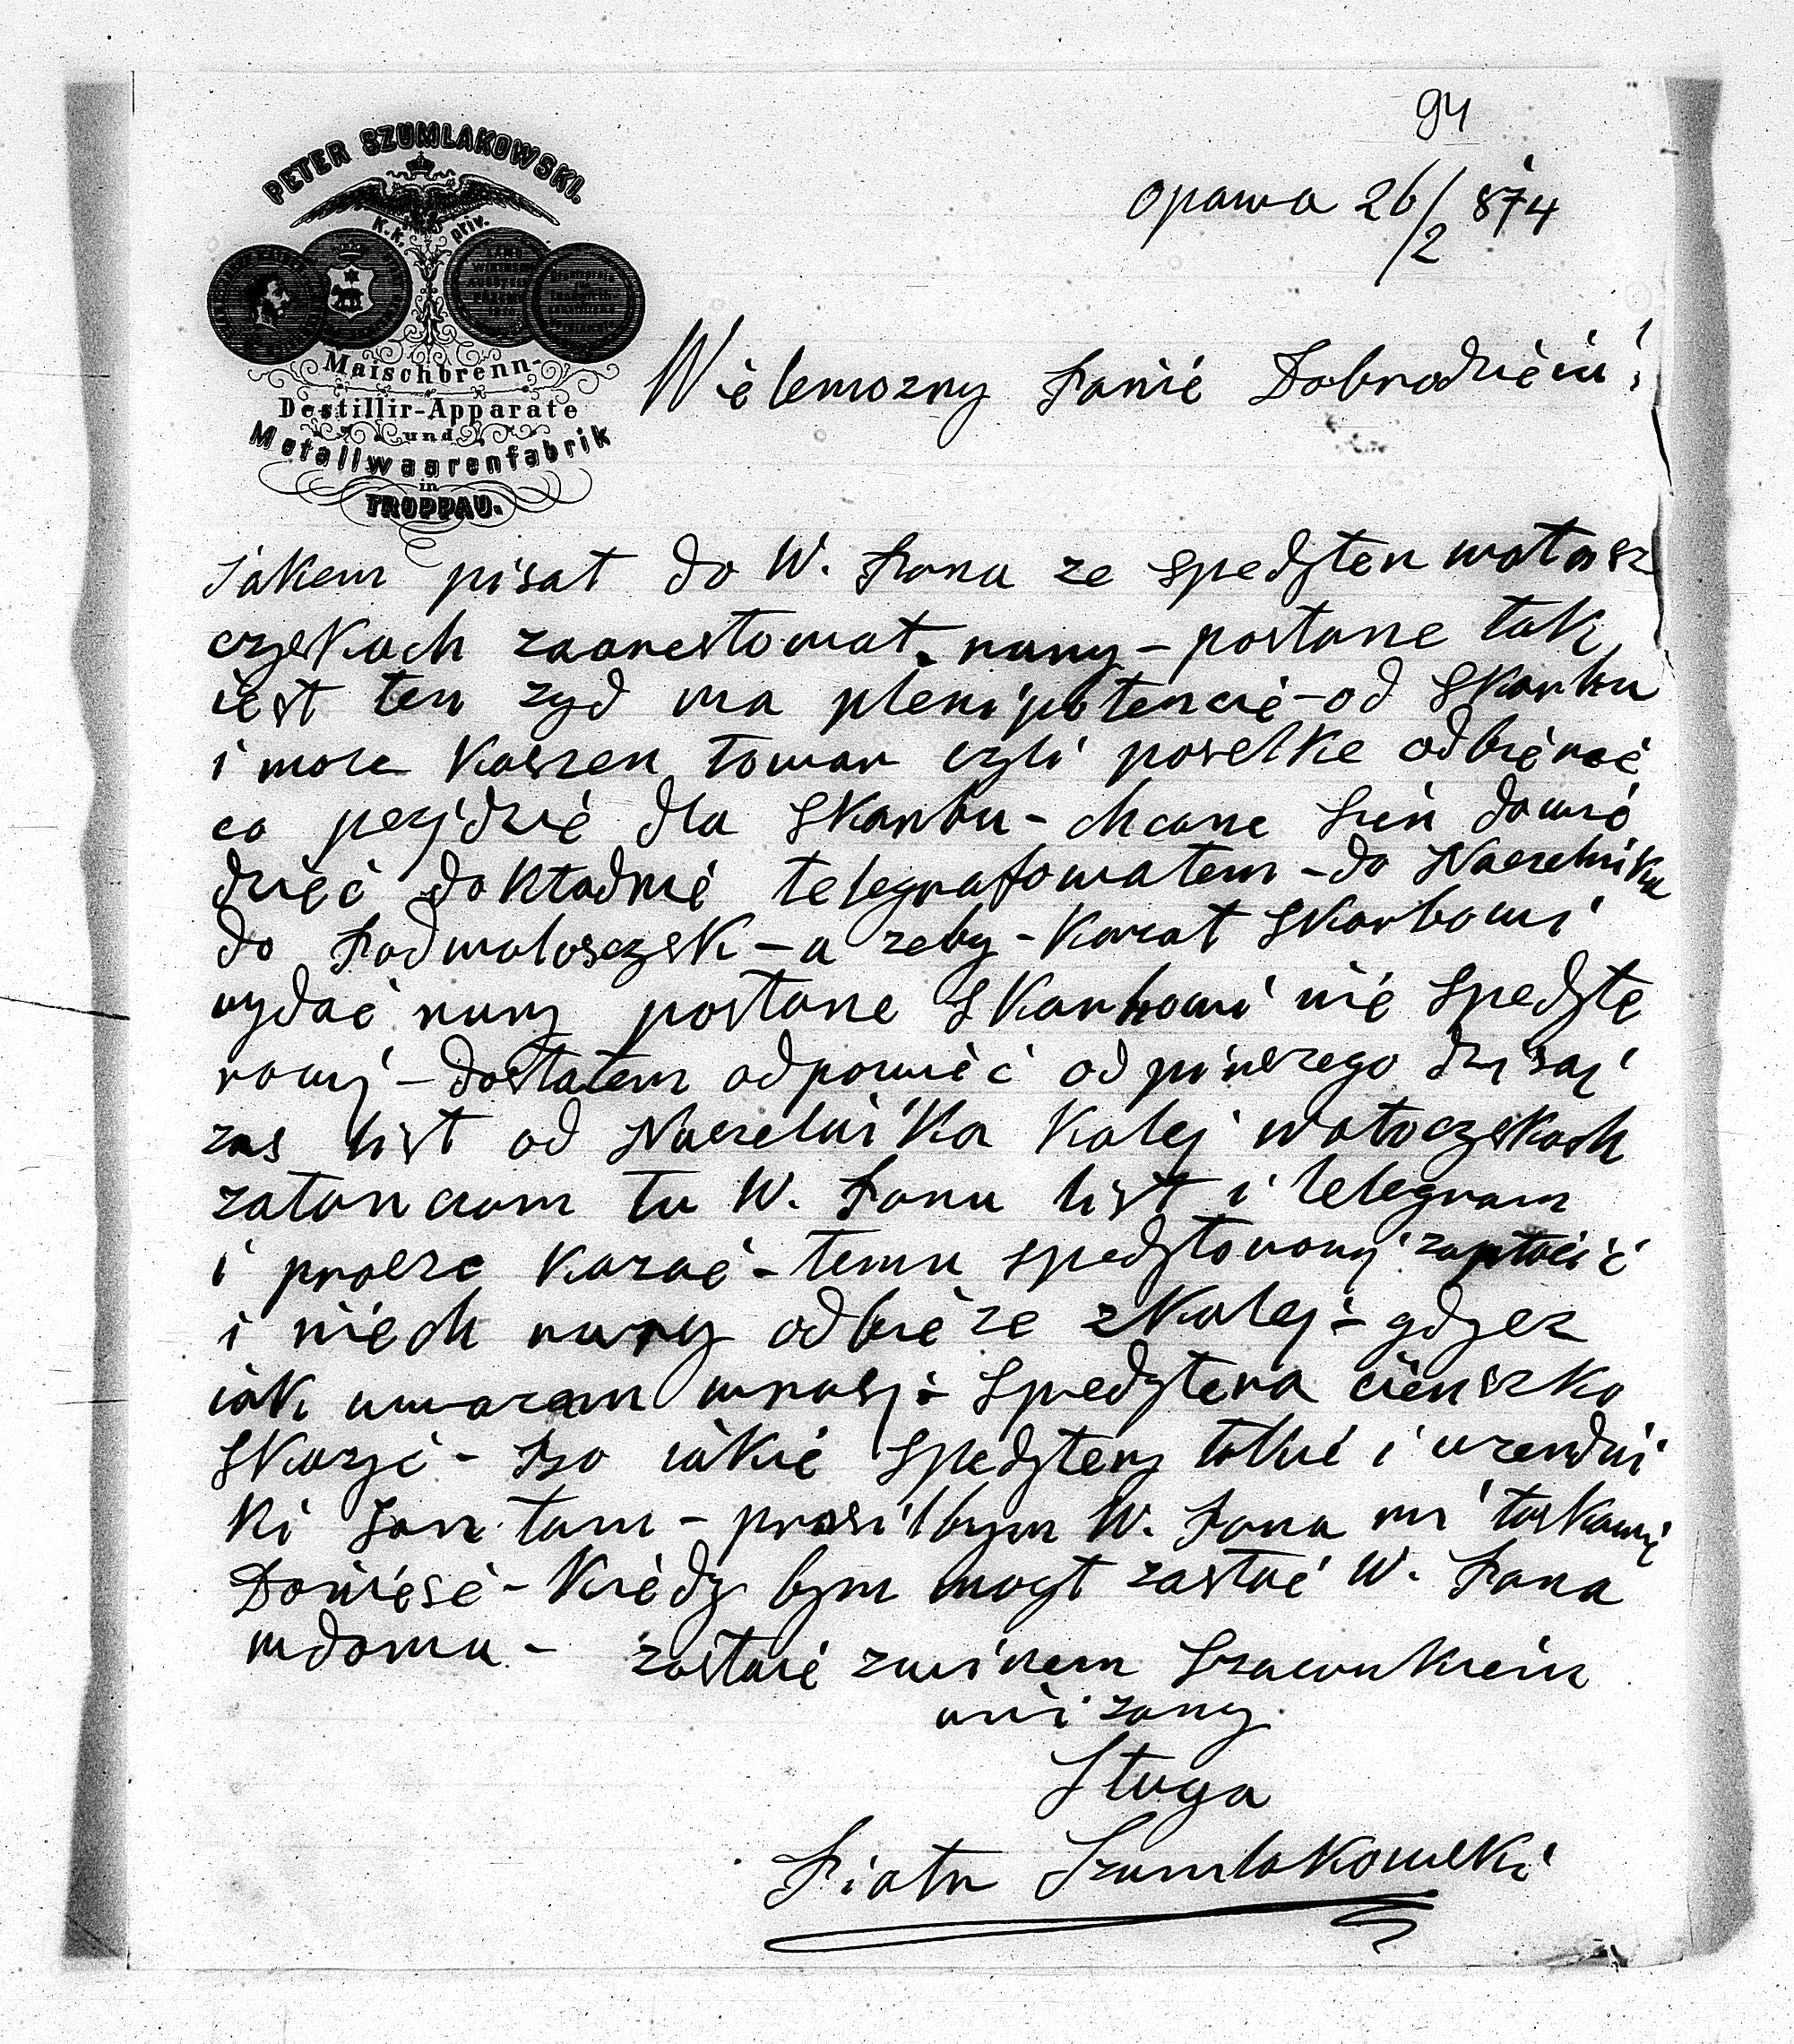 94
PETER SZUMLAKOWSKI.
K. k. priv.
Maischbrenn-
Destillir-Apparate
und
Metallwaarenfabrik
in
TROPPAU.
Opawa 26/2 874
Wielemozny Panie Dobrodzieiu!
Jakem pisat do W. Pana ze spedyter wotosz
czyskach zaarestowat rury – postane tak
iest ten zyd ma plenipotencie – od Skarbu
i moze Kaszen towar czli poselke odbierać
co pszjdzie dla Skarbu – chcone sien dowie
dzieć dokładnie telegrafowatem – do Naczelnika
do Podwoloseczysk – a zeby – Kazat Skarbowi
wydać rury postane Skarbowi nie Spedyte
rowij – dostatem odpowieć od pirszego dzisaj
zas list od Naczelnika Kolej wotoczyskach
zatonczam tu W. Panu list i telegram
i prosze Kazać – temu spedytorowij zaptacić
i niech rury odbieze z Kolej – gdyez
iak uwazam wrosj – Spedytera cienszko
Skazyć – bo iakie Spedytery takie i uzendni
Ki son tam – prosilbym W. Pana mi taskawie
Donieść – Kiedy bym mogt zastać W. Pana
wdomu – zostaie zwinem Szacunkiem
unizony
Stuga
Piotr Szumlakowski